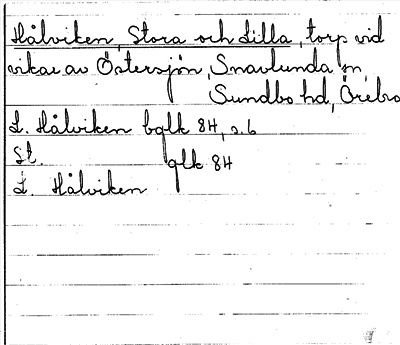 Hålviken, Stora och Lilla, torp vid
vikar av Östersjön, Snavlunda sn,
Sundbo hd, Örebro
L. Hålviken bglk 84, s. 6
St. glk 84
L. Hålviken